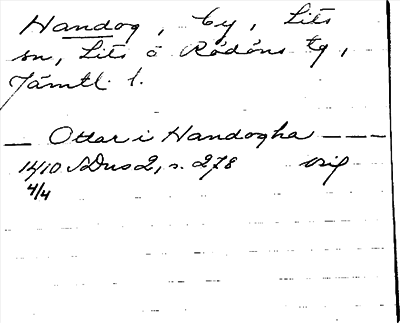 Handog, by, Lits
sn, Lits o Rödöns tg,
Jämtl. l.
— Ottar i Handogha — — —
1410 SDns 2, s. 278 orig
4/4